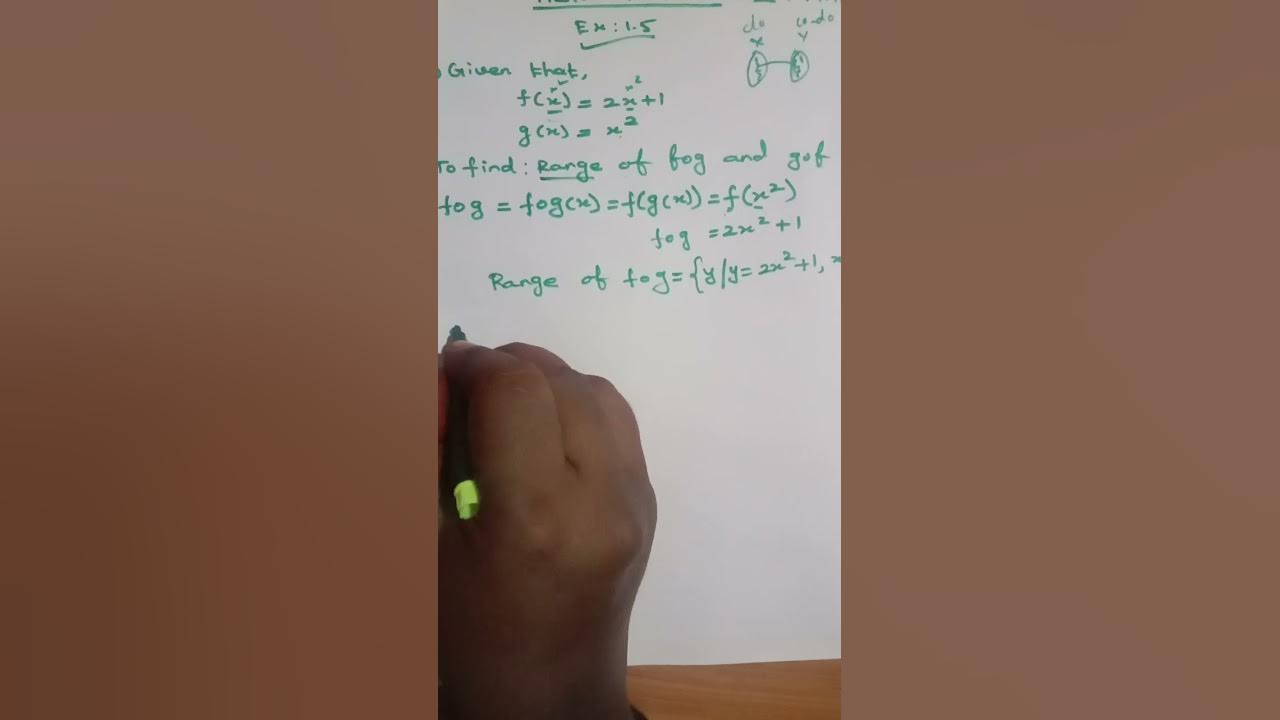 Ex: 1.5
do co-do
x y
Given that,
f(x) = 2x+1
x²
g(x) = x²
To find: Range of fog and gof
fog = fog(x) = f(g(x)) = f(x²)
fog = 2x²+1
Range of fog = {y/y = 2x²+1, x